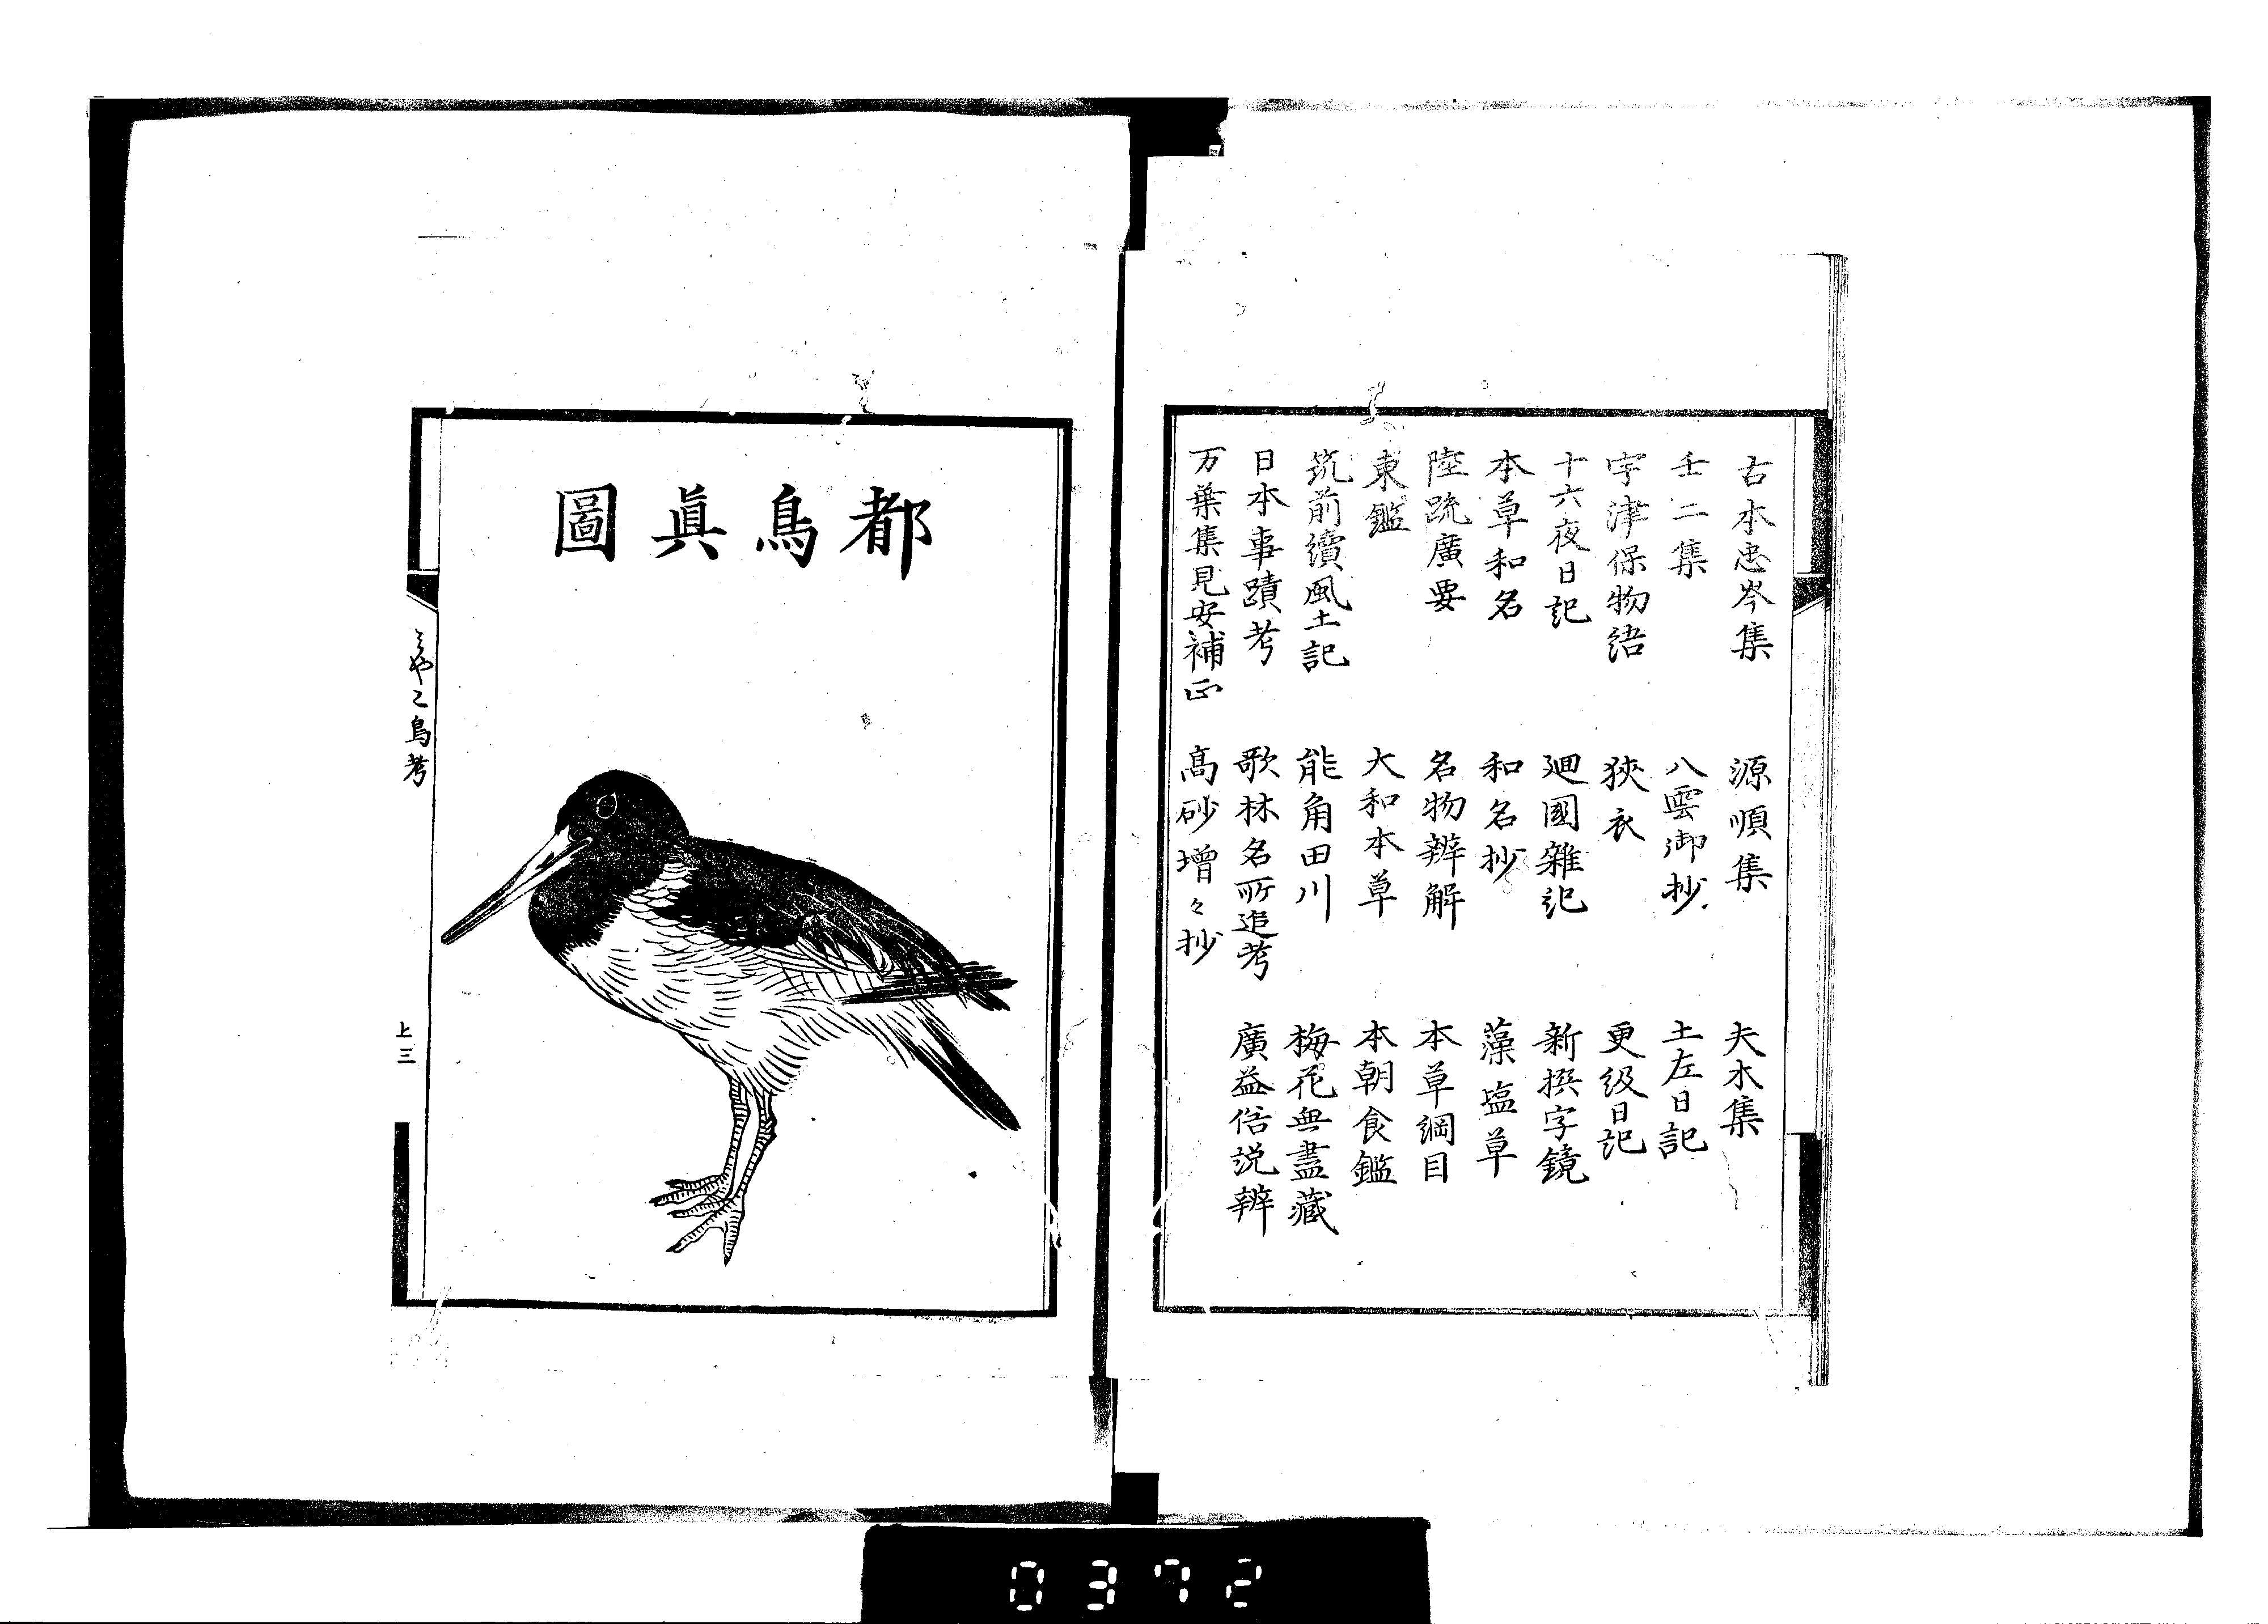 古本忠岑集　源順集　夫木集
壬二集　八雲御抄　土左日記
宇津保物語　狹衣　更級日記
十六夜日記　廻國雜記　新撰字鏡
本草和名　和名抄　藻塩草
陸疏廣要　名物辨解　本草綱目
東鑑　大和本草　本朝食鑑
筑前續風土記　能角田川　梅花無盡藏
日本事蹟考　歌林名所追考　廣益俗説辨
万葉集見安補正　高砂增々抄
都鳥眞圖
みやこ鳥考
上三
0372